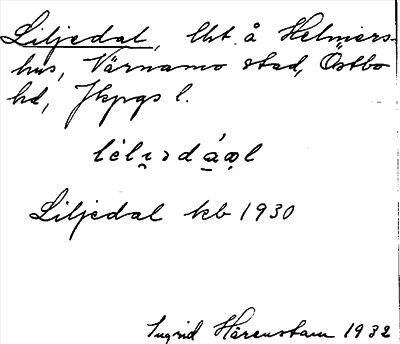 Liljedal, lht å Helmers-
hus, Värnamo stad, Östbo
hd, Jkpgs l.
Liljedal kb 1930
Ingrid Härenstam 1932